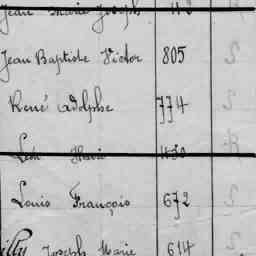 Jean Marie Joseph
Jean Baptiste Victor 805
René Adolphe 774
Léon
Louis François 672
illy Joseph Marie 614